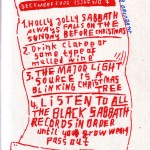 DECEMBER 2008 ISSUE NO
1. HOLLY JOLLY SABBATH
ALWAYS FALLS ON THE
SUNDAY BEFORE CHRISTMAS
2. Drink claret or
some type of
mulled wine
3. THE MAJOR LIGHT
SOURCE IS A XMAS
BLINKING TREE
4. LISTEN TO ALL
THE BLACK SABBATH
RECORDS IN ORDER
until you grow warm
pass out